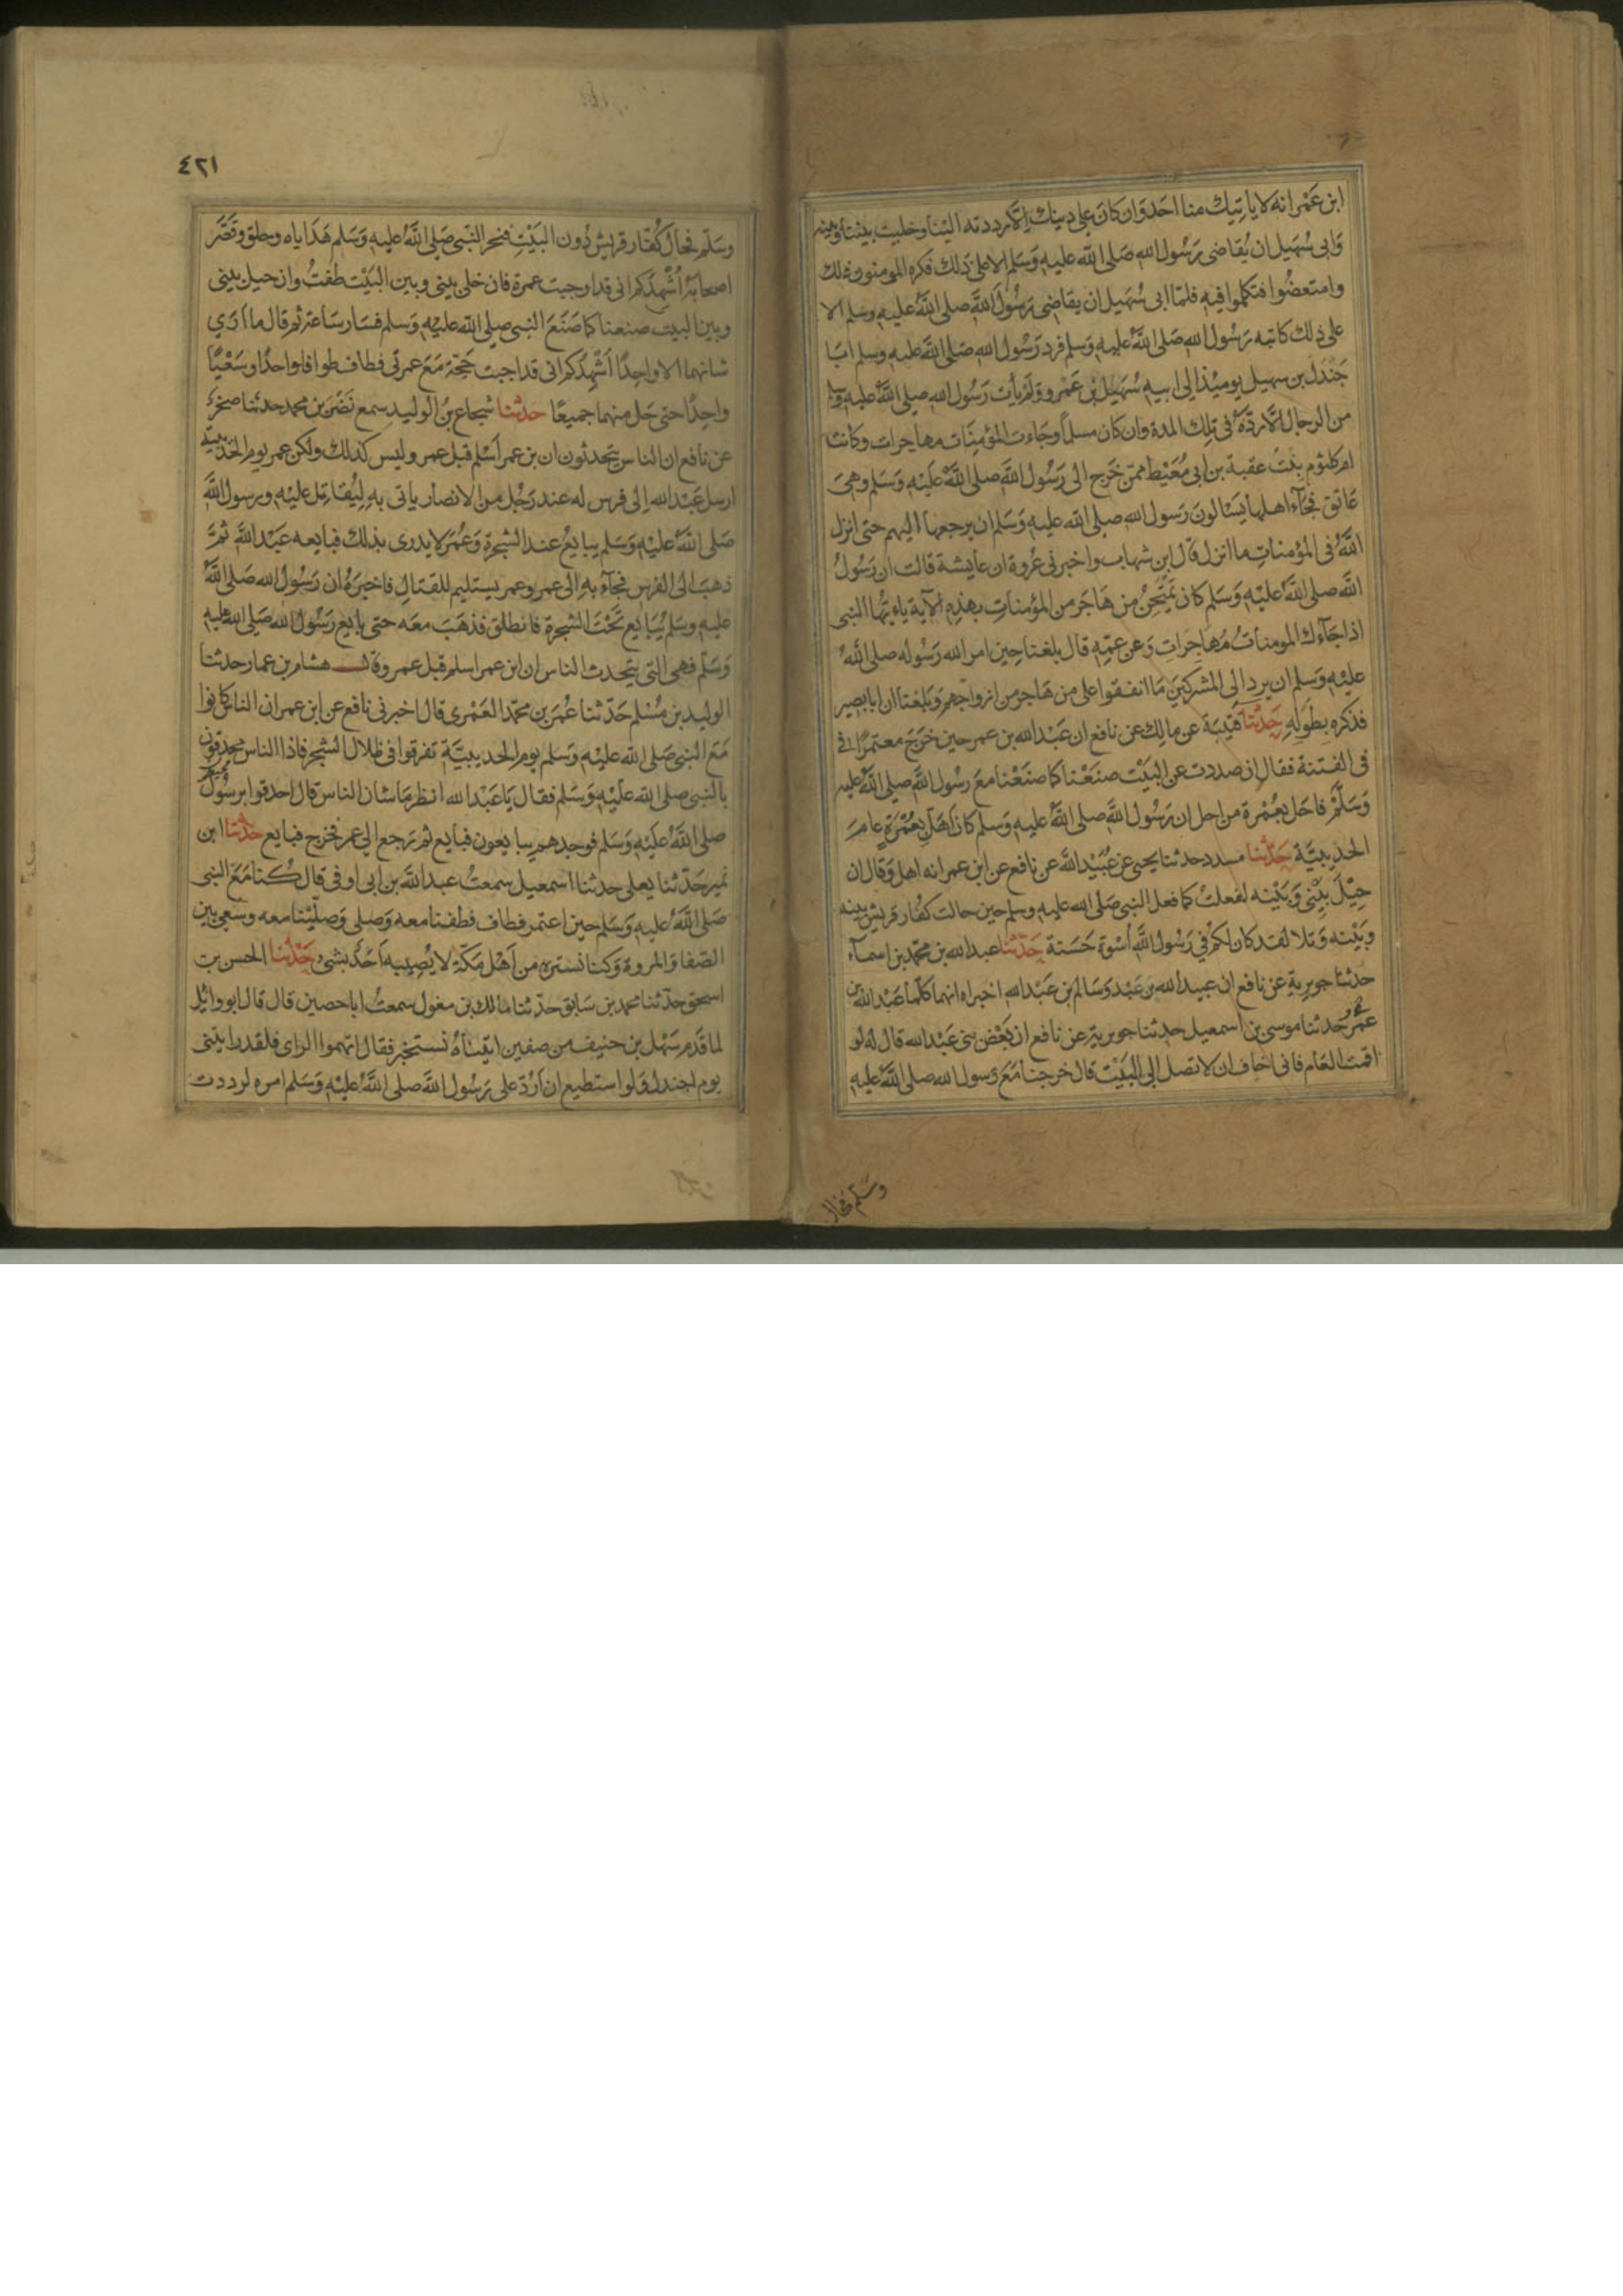 ابن عَمْر انه لا يأتيك منا احَد وَان كانَ على دينك اِلّا رددته اليْنَا وخليت بيْننا وَبينه
وَابى سُهَيل ان يُقاضى رَسُول الله صَلى الله عليهِ وَسَلم الا على ذلك فكره المومنون ذلك
وامتعضُوا فتكلموا فيهِ فلمّا ابى سُهَيل ان يقاضى رَسُول الله صلى اللهُ عليهِ وسلم الا
على ذلك كاتبه رَسُول الله صَلى اللهُ عليهِ وَسلم فرد رَسُول الله صَلى اللهُ عليهِ وسلم ابَا
جَنْدَل بن سهيل يوميْذ الى ابيهِ سُهَيل بن عَمْرو وَلَمْ يأت رَسُول الله صلى اللهُ عليهِ وسلم
من الرجال الّا ردّهُ فى تلك المدة وان كان مسلماً وجَاءت المؤمِنَات مهاجرات وكانت
ام كلثوم بنْتُ عقبة بن ابى مُعَيْط ممّن خَرج الى رَسُول الله صلى اللهُ عَليْهِ وَسَلم وهىَ
عَاتق فجَآءَ اهلها يسَالون رَسول الله صلى الله عليهِ وَسَلم ان يرجعها اليهم حتى انزل
اللهُ فى المؤمناتِ ما انزل قال ابن شهاب واخبرنى عُروة ان عايشة قالت ان رَسُولُ
الله صلى اللهُ عليْهِ وَسَلم كان يَمْتَحِنُ من هَاجَر من المؤمناتِ بهذِهِ الآية ياءيّهَا النبى
اذا جَآءك المومنَاتُ مُهَاجِرَاتٍ وَعن عمّهِ قال بلغنا حِين امر الله رَسُوله صلى اللهُ
عليْهِ وَسَلم ان يرد الى المشركينَ مَا انفقوا على من هَاجر من ازواجهم وَبلغنا ان ابا بصير
فذكره بطَولِهِ حَدثنا قتيبَة عن مالِك عن نافع ان عَبْد الله بن عمر حين خَرج معتمرًا فى
فى الفتنة فقال ان صددت عن البَيْت صنَعْنا كما صنَعْنا معَ رسُول الله صلى اللهُ عليهِ
وَسَلّمْ فاهل بعُمْرة من اجل ان رَسُول الله صلى اللهُ عليهِ وَسلم كان اهَلّ بعُمْرَةٍ عامَ
الحدَيبيّة حَدّثنا مسدد حدثنا يحيى عن عُبَيْد الله عن نافع عن ابن عمر انه اهل وَقال ان
حِيْلَ بيْنِى وَبَيْنه لفعلتُ كما فعل النبى صَلى الله عليهِ وسلم حين حالت كفُار قريش بينه
وبَيْنه وَتلا لقد كان لكُمْ فى رَسُول اللهِ اُسْوَة حَسَنة حَدّثنا عبد الله بن محمّد بن اسمآء
حدثنا جويرية عن نافع ان عبيد الله بن عَبْد وَسَالم بن عَبْد الله اخبراه انهما كلّما عَبْد الله بن
عُمر حَدثنا موسى بن اسمعيل حدثنا جويرية عن نافع ان بَعْضَ بنى عَبْد الله قال له لو
اقمت العَام فانى اخاف ان لا تصل الى البَيْت قال خرجنا مَعَ رَسول الله صلى اللهُ عليهِ
وسَلم فحال
٤٢١
وسَلّم فحَال كُفّار قريش دُون البَيْتِ فنحر النّبى صَلى اللهُ عليهِ وَسَلم هَدَاياه وحلق وقَصّر
اصحابهُ اُشْهِدُكم انى قد اوجبت عمرة فان خلى بينى وبين البَيْت طفتُ وان حيل بينى
وبين البيت صنعنا كما صَنَعَ النبى صلى الله عليْهِ وَسَلم فسَار سَاعة ثم قال ما اَرَي
شانهما الا واحِدًا اُشْهِدُكم انى قد اجبت حَجّة مَعَ عمرتى فطاف طوافا واحدًا وسَعْيًا
واحِدًا حتى حَل منهما جميعًا حدثنا شجاع بنُ الوليد سمع نَضَر بن محمد حدثنا صَخر
عن نافع ان الناس يتحدثون ان بن عمر اَسْلم قبل عمر وليس كذلك ولكن عمر يوم الحديبيّة
ارسل عَبْد الله الى فرس له عند رَجُل من الانصار ياتى بهِ لِيُقاتِل عليْهِ ورسول الله
صَلى اللهُ عليْهِ وَسَلم يبايعُ عند الشجَرة وَعُمرَ لا يدرى بذلك فبايعه عَبْد الله ثمّ
ذهبَ الى الفرَس فجآء بهِ الى عمر وعمر يستليم للقتالِ فاخبرَهُ ان رَسُول الله صَلى اللهُ
عليهِ وسَلم يُبَايع تَحْتَ الشجرة فانطلق فذهَبَ معَه حتى بايع رَسُول الله صَلى الله عليهِ
وَسَلّم فهى التى يتحدث الناس ان ابن عمر اسلم قبل عمر وقال هشام بن عمار حدثنا
الوليد بن مُسْلم حَدّثنا عُمَر بن محمّد العَمْرى قال اخبرنى نافع عن ابن عمر ان الناس كانوا
مَعَ النبى صَلى الله عليْهِ وَسلم يوم الحديبيَّة تفرقوا فى ظلال الشجر فاذا الناس محدقون
بالنبى صلى الله عليْهِ وَسَلم فقال يَا عَبْد الله انظر مَا شان الناس قد احدقوا برسُول
صلى اللهُ عَليْهِ وَسَلم فوجدهم يبايعون فبايع ثم رَجع الى عمر فخرج فبايع حدثنا ابن
نمير حَدّثنا يعلى حدثنا اسمعيل سمعتُ عبد الله بن ابى اوفى قال كُنا مَعَ النبى
صَلى اللهُ عليهِ وَسَلم حين اعتمر فطاف فطفنا معه وَصلى وَصليْنا معه وسَعى بين
الصّفا وَالمروة وَكنا نستره من اَهْل مَكةَ لا يُصِيبه اَحَدٌ بشئ حَدّثنا الحسن بن
اسحق حدّثنا محمد بن سَابق حدّثنا مالك بن مغول سمعتُ ابا حصين قال قال ابو وائل
لما قدم سَهْل بن حنيف من صفين اتيْنَاهُ نستخبر فقال اتهموا الراى فلقد رايتنى
يوم ابى جندل وَلو استطيع ان اَرُدّ على رَسُول الله صلى اللهُ عليْهِ وَسَلم امره لرددت